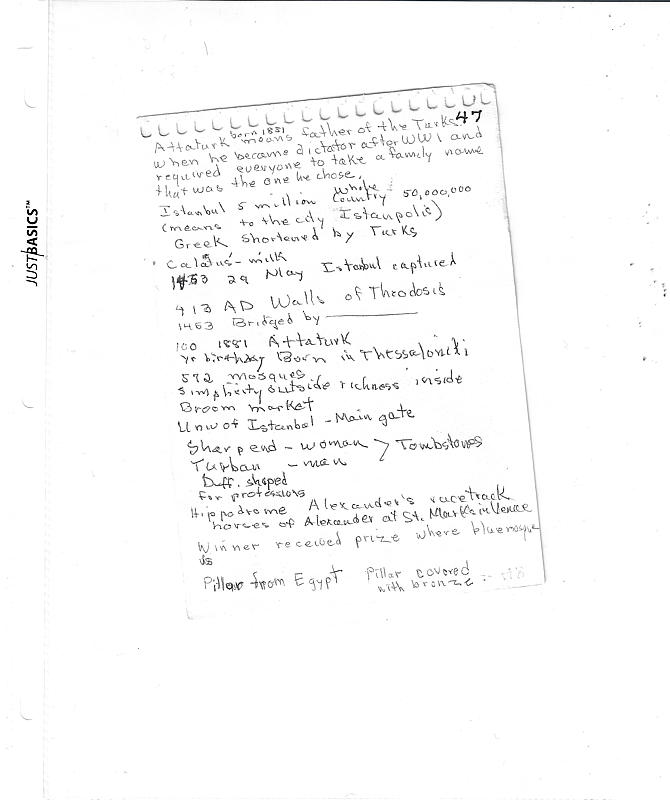 JUSTBASICS™
47
born 1881
Attaturk means father of the Turks
when he became dictator after WW1 and
required everyone to take a family name
that was the one he chose.
Istanbul 5 million whole country 50,000,000
(means to the city Istanpolis)
Greek shortened by Turks
- milk
1453 29 May Istanbul captured
413 AD Walls of Theodosis
1453 Bridged by
100 1881 Attaturk
yr birthday Born in Thessaloniki
572 mosques
Simplicity outside richness inside
Broom market
Univ of Istanbul - Main gate
Sharp end - woman > Tombstones
Turban - men
Diff. shaped
for professions
Hippodrome Alexander's racetrack
horses of Alexander at St. Mark's in Venice
Winner received prize where bluemosque
is
Pillar from Egypt Pillar covered
with bronze